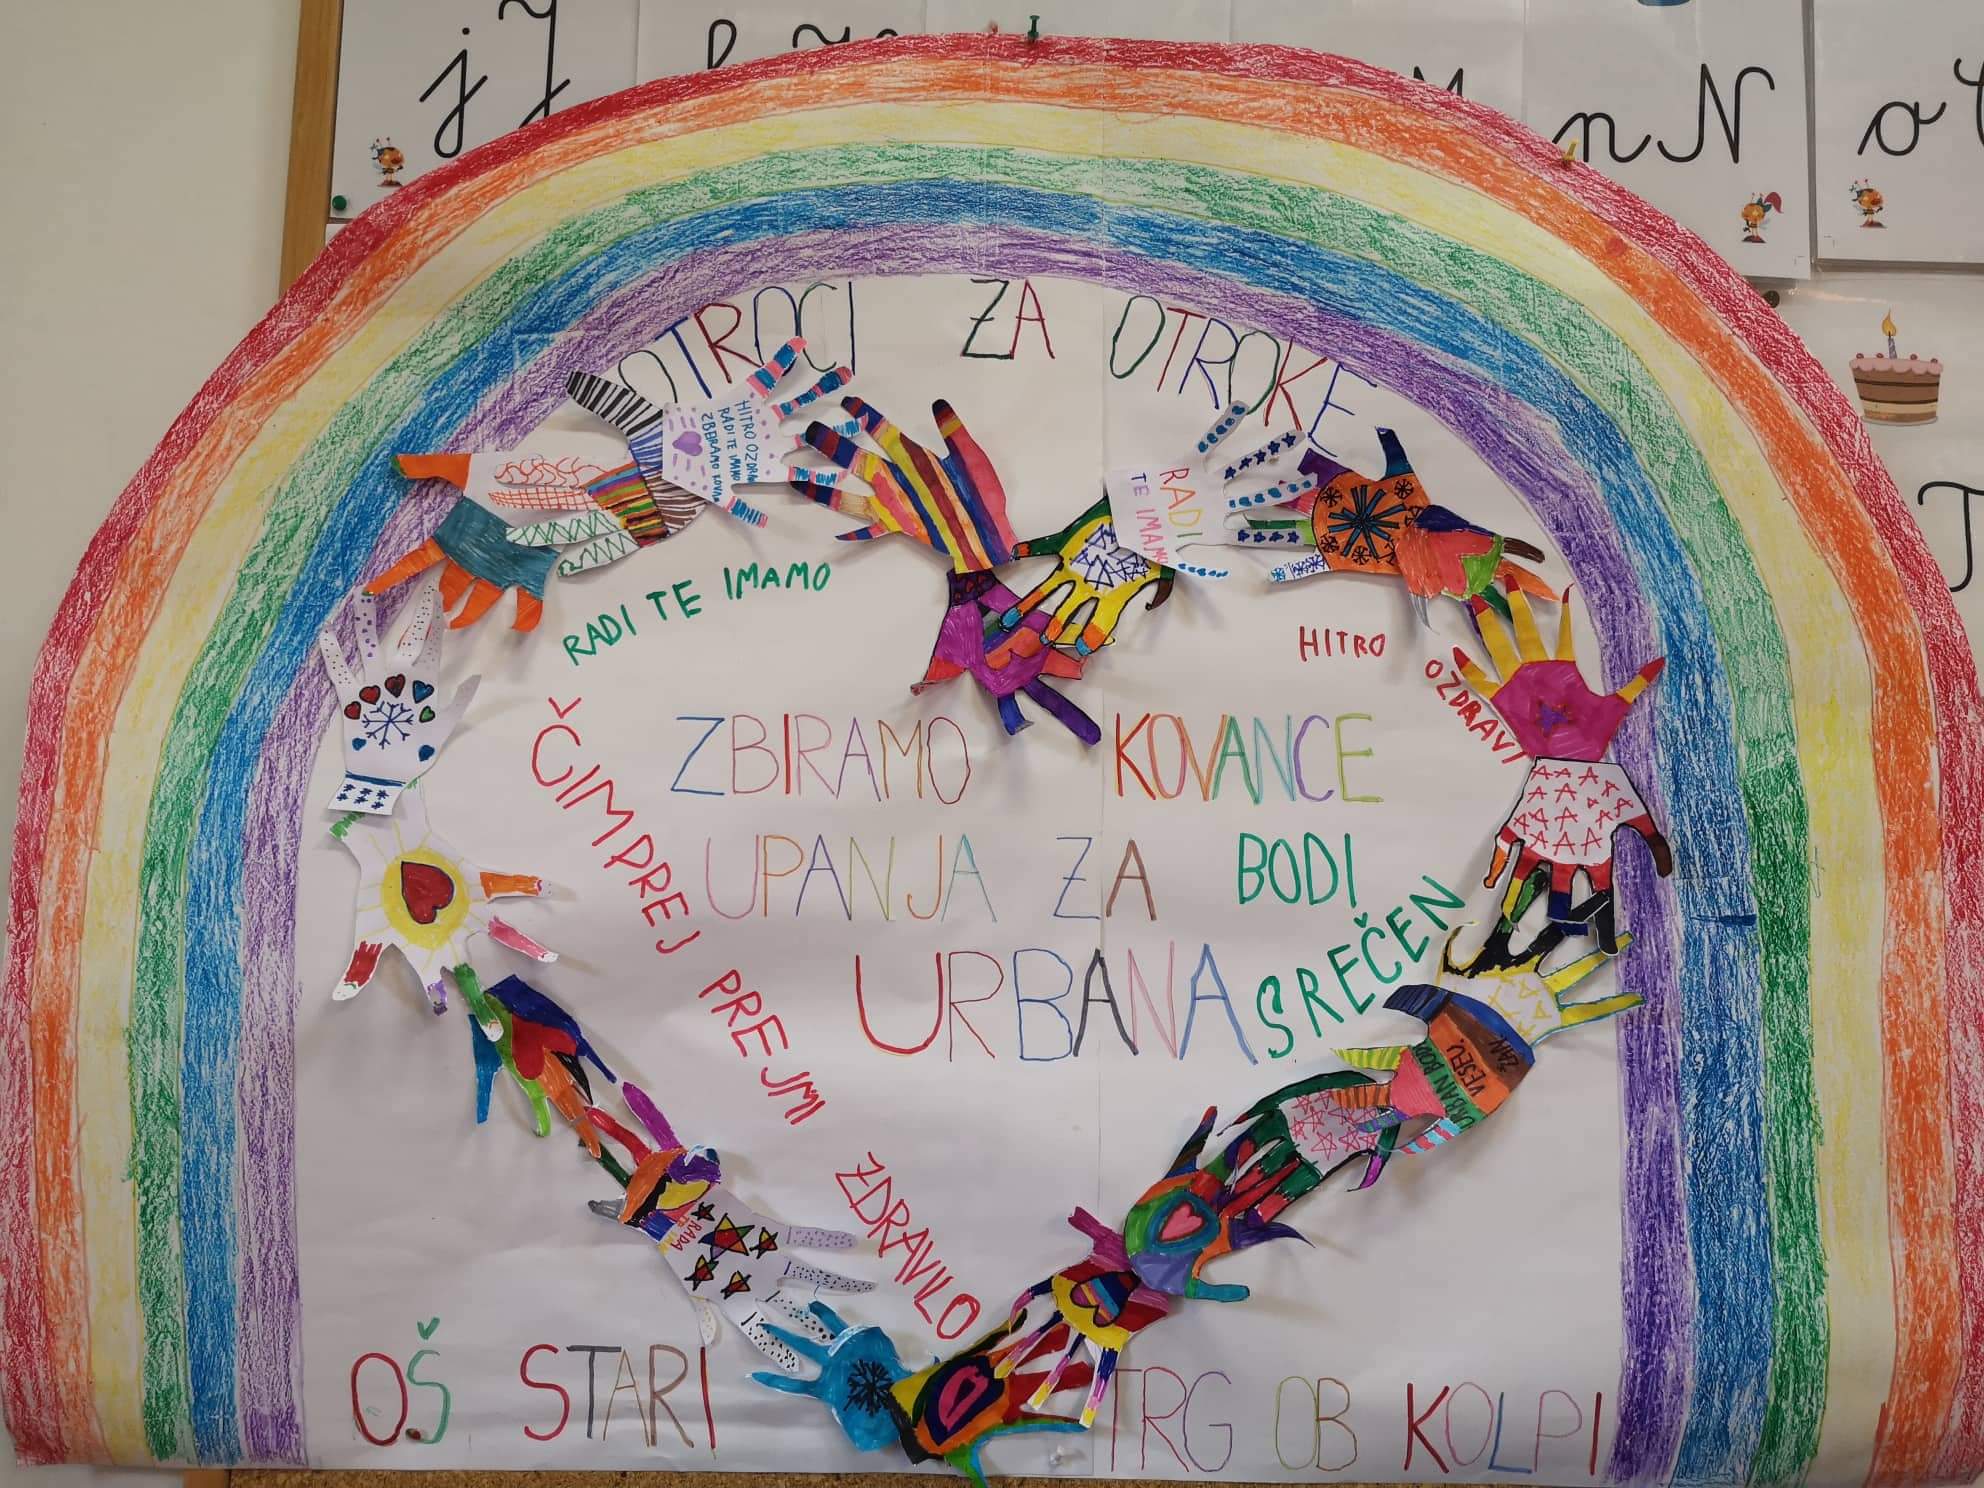 j J
n N
o
T
OTROCI ZA OTROKE
HITRO OZDRAVI
RADI TE IMAMO
ZBIRAMO
RADI
TE IMAMO
RADI TE IMAMO
HITRO
OZDRAVI
ČIMPREJ PREJMI ZDRAVILO
ZBIRAMO KOVANCE
UPANJA ZA
URBANA
BODI
SREČEN
URBAN BODI
VESEL.
ŽAN
OŠ STARI TRG OB KOLPI